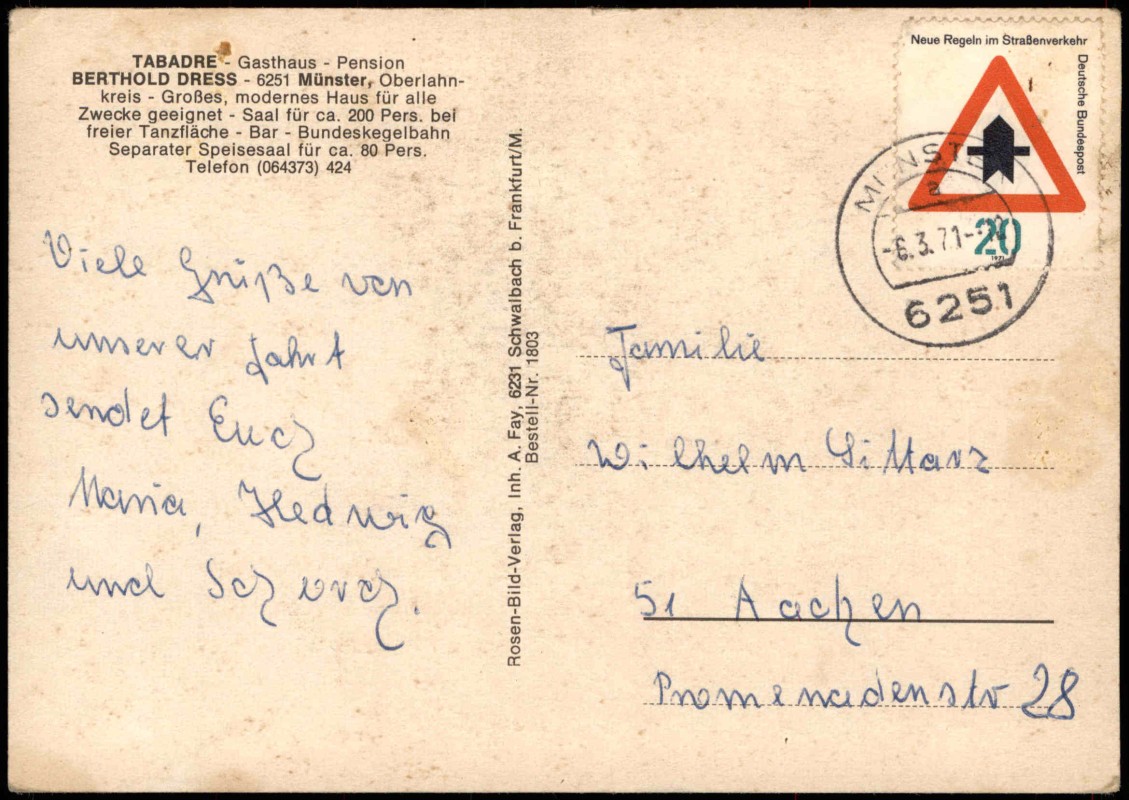 TABADRE - Gasthaus - Pension
BERTHOLD DRESS - 6251 Münster, Oberlahn-
kreis - Großes, modernes Haus für alle
Zwecke geeignet - Saal für ca. 200 Pers. bei
freier Tanzfläche - Bar - Bundeskegelbahn
Separater Speisesaal für ca. 80 Pers.
Telefon (064373) 424
Viele Grüße von
unserer Fahrt
sendet Euch
Maria, Hedwig
und Schorch.
Rosen-Bild-Verlag, Inh. A. Fay, 6231 Schwalbach b. Frankfurt/M.
Bestell-Nr. 1803
Neue Regeln im Straßenverkehr
Deutsche Bundespost
20
1971
MÜNSTER
a
-6.3.71-
6251
Familie
Wilhelm Sittarz
51 Aachen
Promenadenstr 28